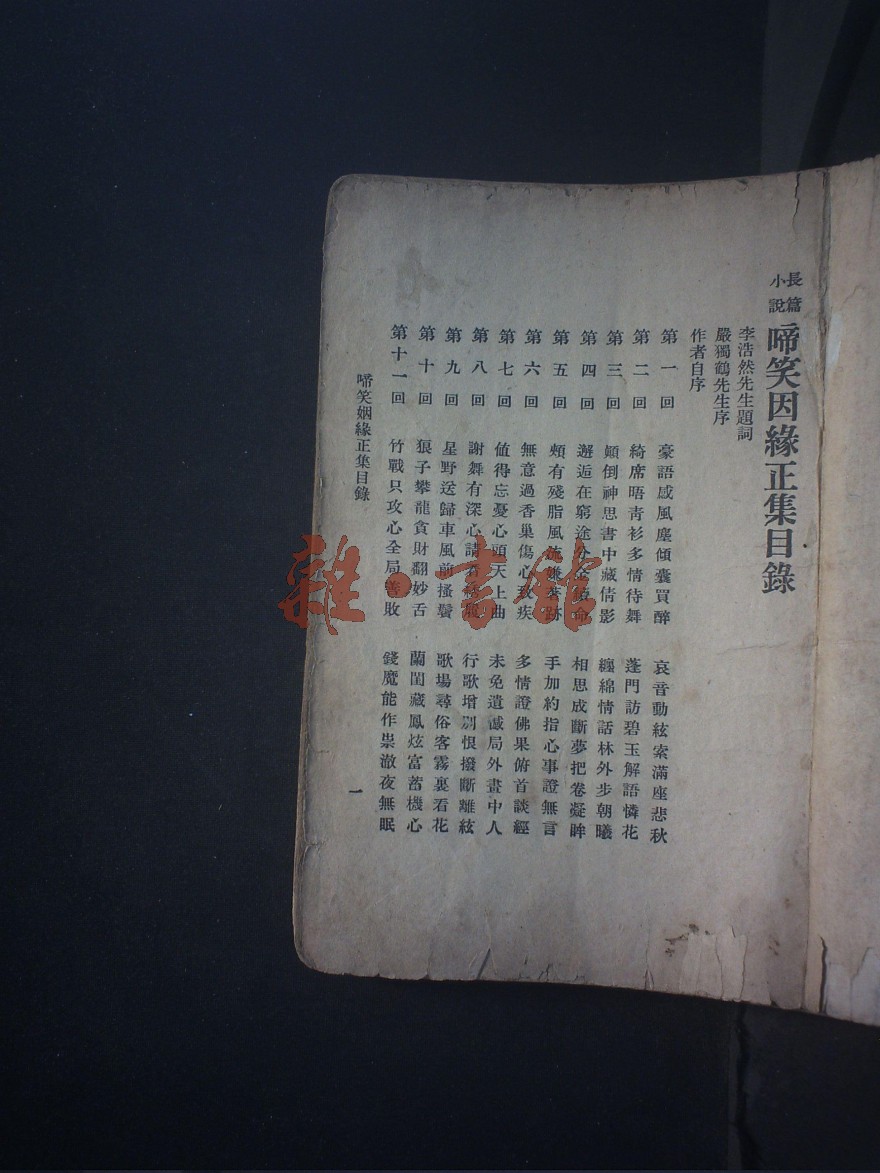 長篇小說
啼笑因緣正集目錄
李浩然先生題詞
嚴獨鶴先生序
作者自序
第一回 豪語感風塵傾囊買醉 哀音動絃索滿座悲秋
第二回 綺席晤青衫多情待舞 蓬門訪碧玉解語憐花
第三回 顛倒神思書中藏倩影 纏綿情話林外步朝曦
第四回 邂逅在窮途分金續命 相思成斷夢把卷凝眸
第五回 頰有殘脂風流嫌著跡 手加約指心事證無言
第六回 無意過香巢傷心致疾 多情證佛果俯首談經
第七回 值得忘憂心頭天上曲 未免遺憾局外畫中人
第八回 謝舞有深心請看 行歌增別恨撥斷離絃
第九回 星野送歸車風前搔鬢 歌場尋俗客霧裏看花
第十回 狼子攀龍貪財翻妙舌 蘭閨藏鳳炫富蓄機心
第十一回 竹戰只攻心全局善敗 錢魔能作祟澈夜無眠
啼笑姻緣正集目錄
一
雜·書館